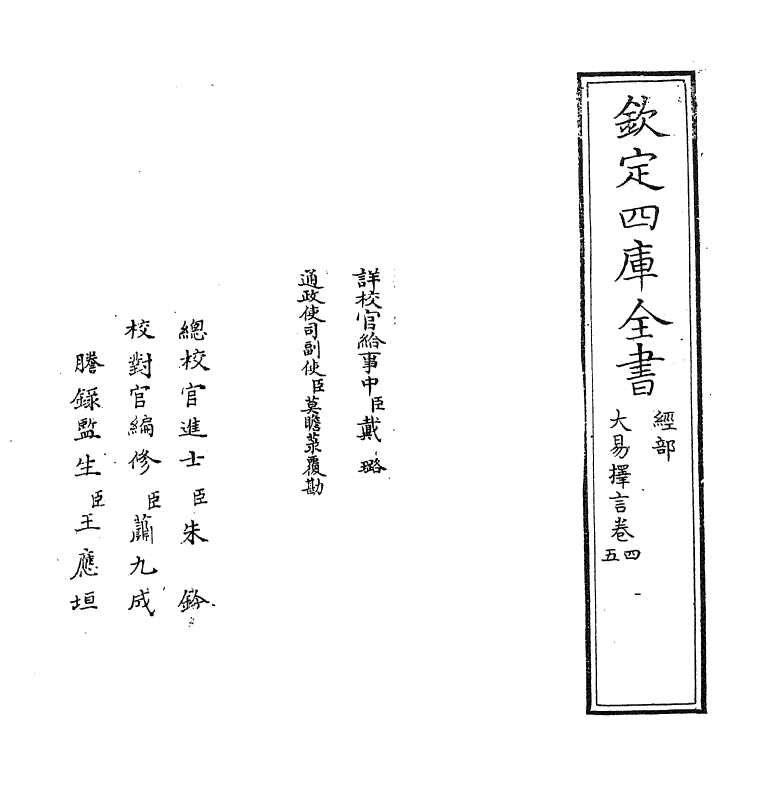 欽定四庫全書
經部
大易擇言卷四五
詳校官給事中臣戴璐
通政使司副使臣莫瞻菉覆勘
總校官進士臣朱鈐
校對官編修臣蕭九成
謄錄監生臣王應垣